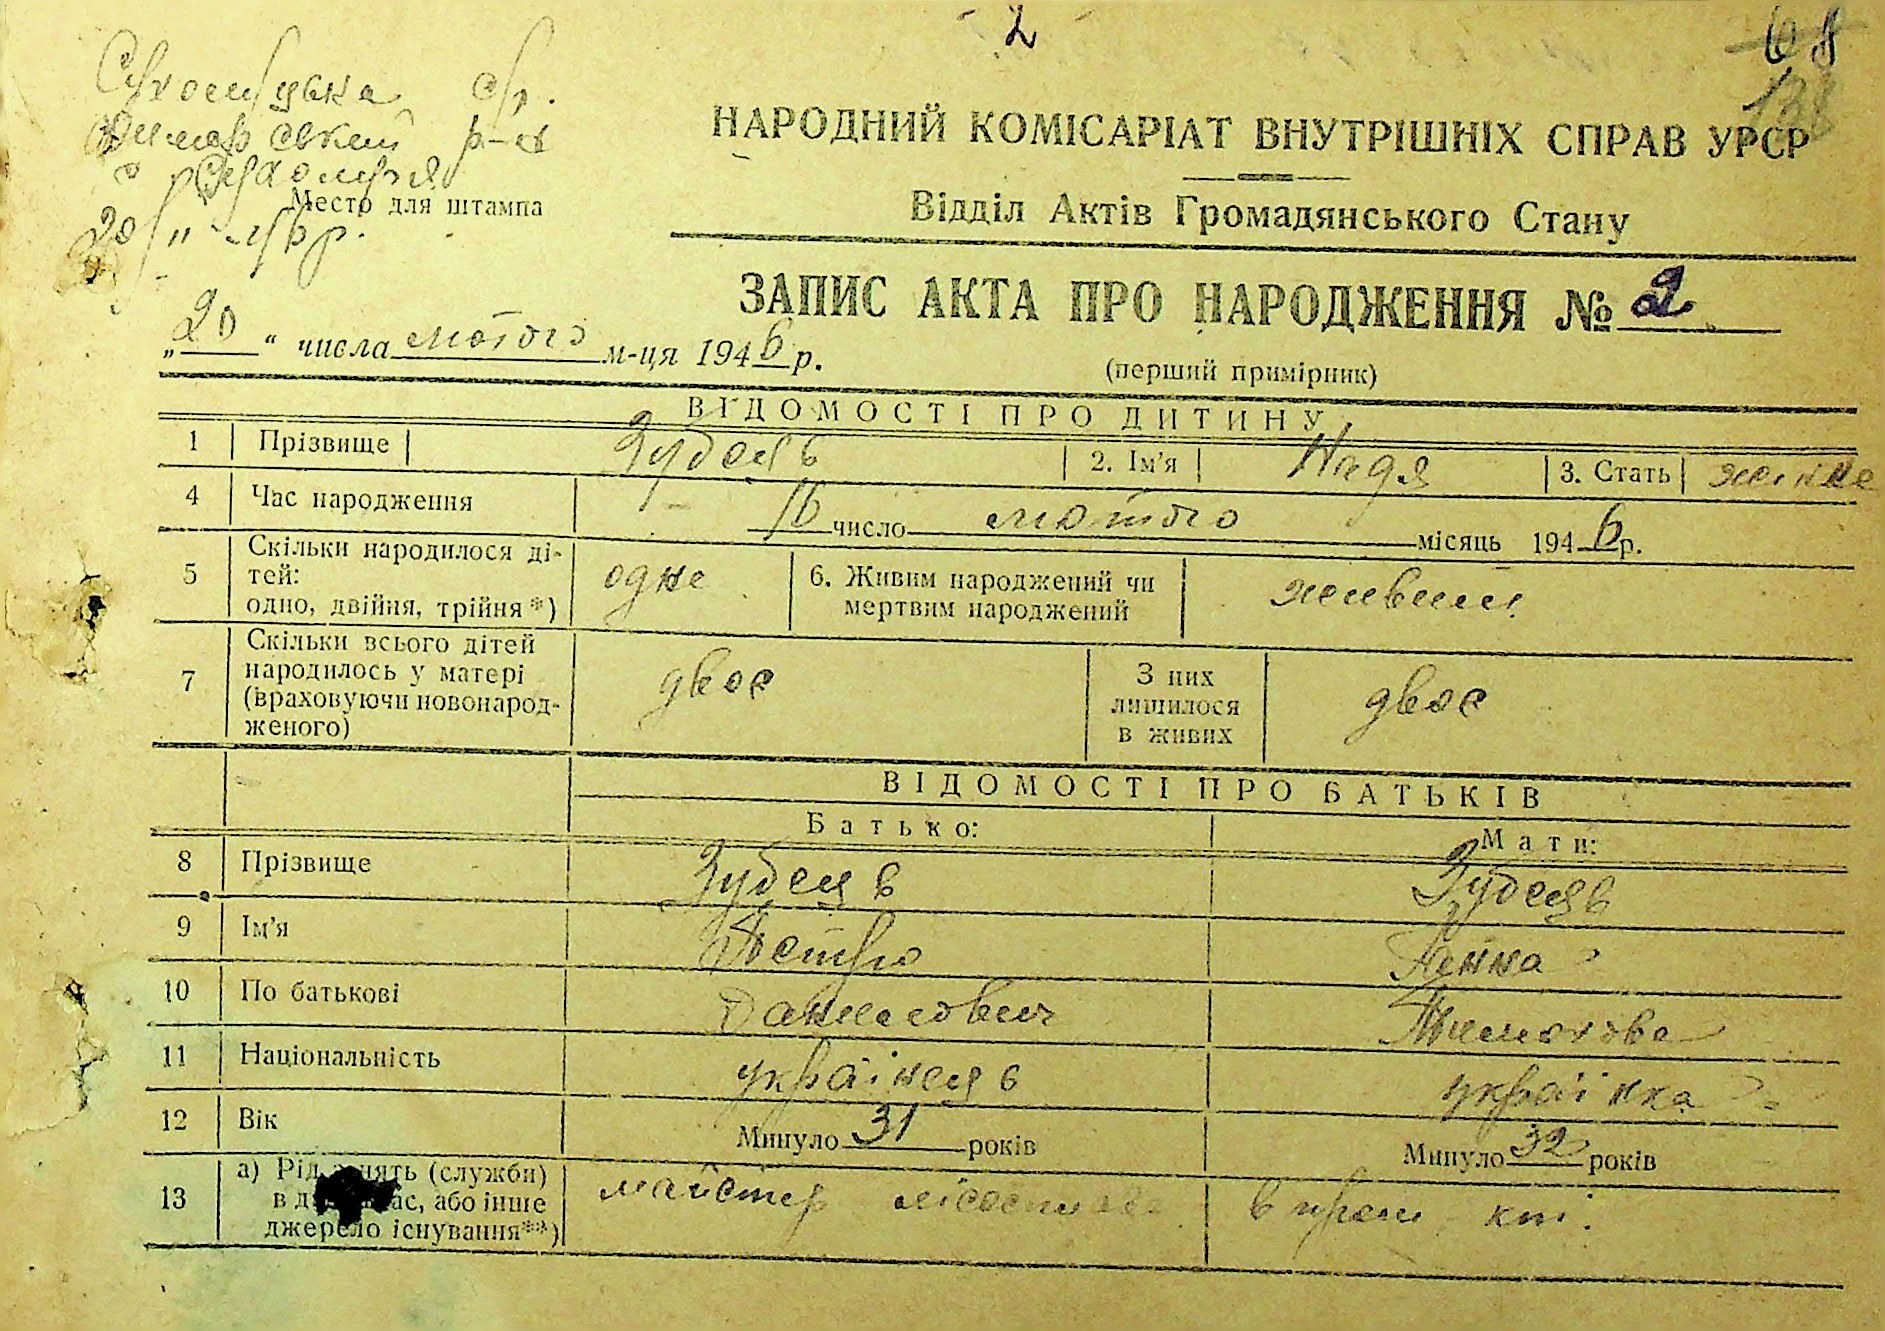 2
Сухолуцька с/р.
Димерський р-н
с Сухолуччя
Место для штампа
20/II 46 р.
НАРОДНИЙ КОМІСАРІАТ ВНУТРІШНІХ СПРАВ УРСР
Відділ Актів Громадянського Стану
ЗАПИС АКТА ПРО НАРОДЖЕННЯ № 2
„20“ числа лютого м-ця 1946 р.
(перший примірник)
ВІДОМОСТІ ПРО ДИТИНУ
1 Прізвище Зубець 2. Ім’я Надя 3. Стать
4 Час народження 16 число лютого місяць 1946 р.
5 Скільки народилося ді-
тей:
одно, двійня, трійня*) одне 6. Живим народжений чи
мертвим народжений живим
7 Скільки всього дітей
народилось у матері
(враховуючи новонарод-
женого) двоє З них
лишилося
в живих двоє
ВІДОМОСТІ ПРО БАТЬКІВ
Батько: Мати:
8 Прізвище Зубець Зубець
9 Ім’я Петро Ганна
10 По батькові
11 Національність українець українка
12 Вік Минуло 31 років Минуло 32 років
13 а) Рід занять (служби)
в даний час, або інше
джерело існування**) майстер